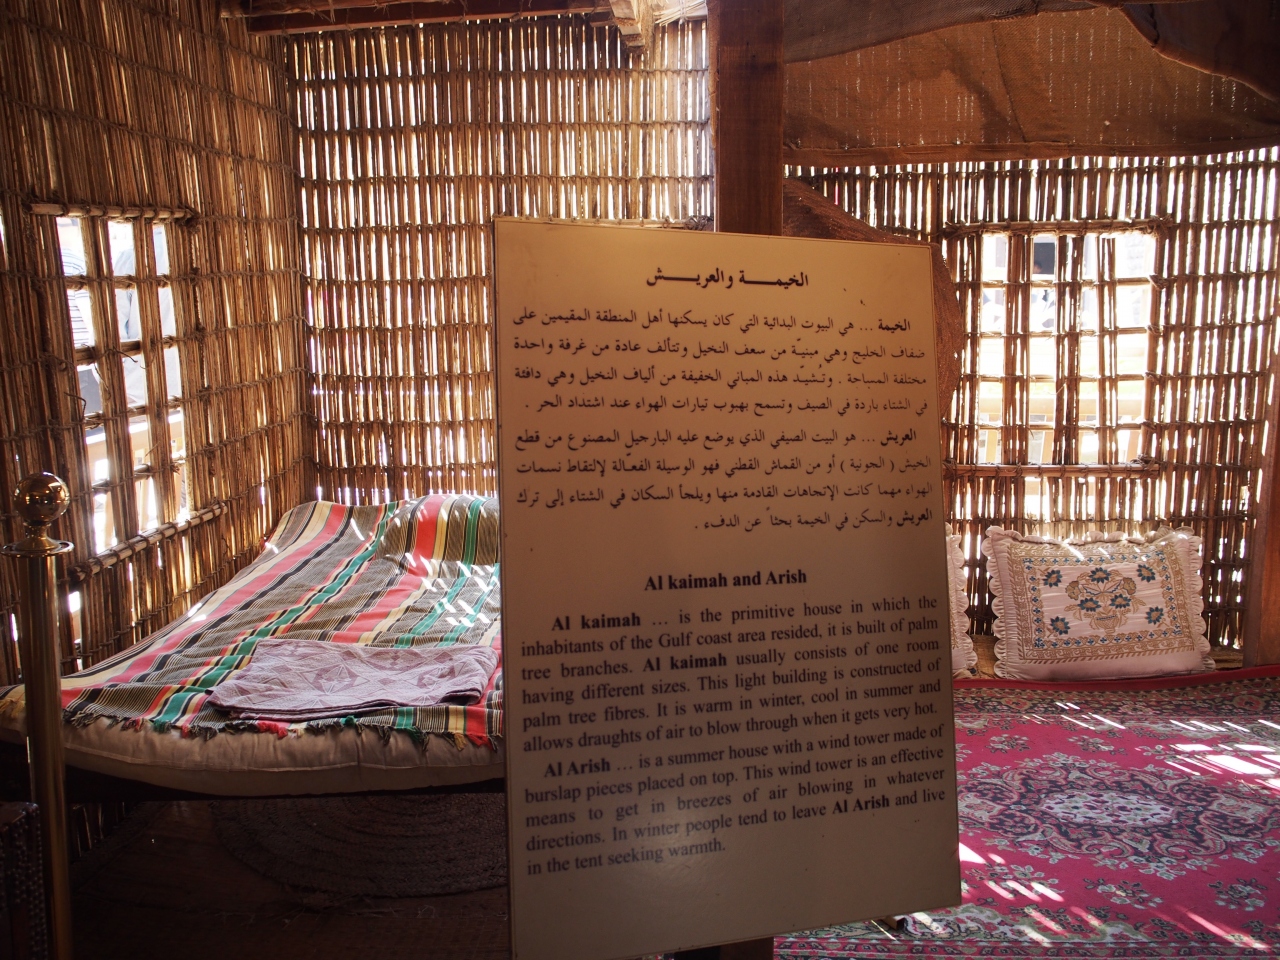 الخيمـــة والعريـــش
الخيمة ... هي البيوت البدائية التي كان يسكنها أهل المنطقة المقيمين على
ضفاف الخليج وهي مبنيّة من سعف النخيل وتتألف عادة من غرفة واحدة
مختلفة المساحة . وتُشيـد هذه المباني الخفيفة من ألياف النخيل وهي دافئة
في الشتاء باردة في الصيف وتسمح بهبوب تيارات الهواء عند اشتداد الحر .
العريش ... هو البيت الصيفي الذي يوضع عليه البارجيل المصنوع من قطع
الخيش ( الجونية ) أو من القماش القطني فهو الوسيلة الفعـالة لإلتقاط نسمات
الهواء مهما كانت الإتجاهات القادمة منها ويلجأ السكان في الشتاء إلى ترك
العريش والسكن في الخيمة بحثاً عن الدفء .
Al kaimah and Arish
Al kaimah ... is the primitive house in which the
inhabitants of the Gulf coast area resided, it is built of palm
tree branches. Al kaimah usually consists of one room
having different sizes. This light building is constructed of
palm tree fibres. It is warm in winter, cool in summer and
allows draughts of air to blow through when it gets very hot.
Al Arish ... is a summer house with a wind tower made of
burslap pieces placed on top. This wind tower is an effective
means to get in breezes of air blowing in whatever
directions. In winter people tend to leave Al Arish and live
in the tent seeking warmth.